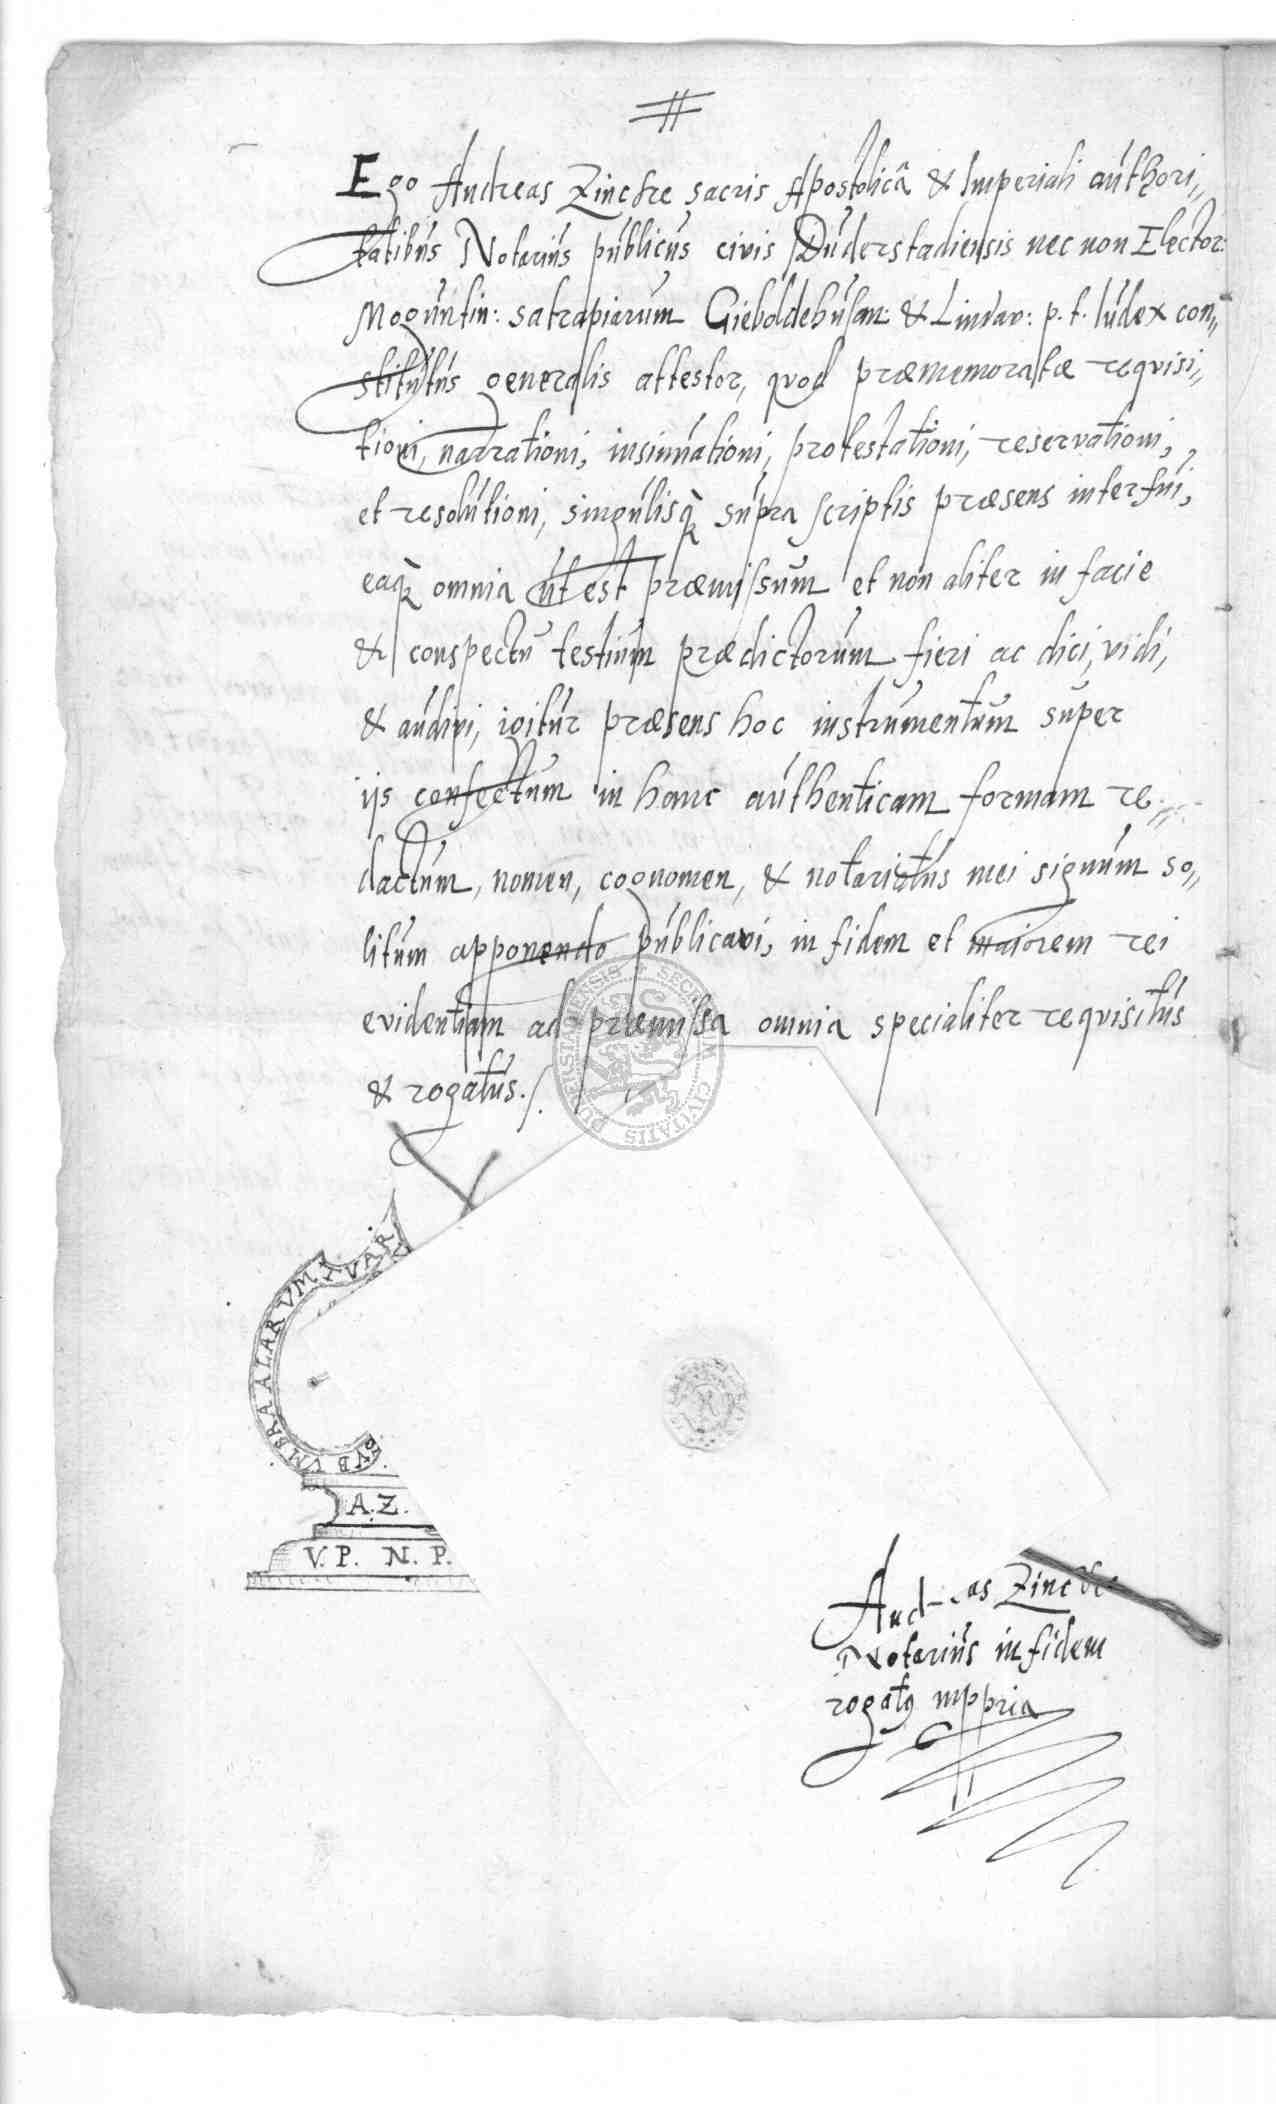 Ego Andreas Zincke sacris Apostolicâ & Imperiali authori„
tatibus Notarius publicus civis Duderstadiensis nec non Elector:
Moguntin: satrapiarum Gieboldehusan: & Lindav: p. t. Iudex con„
stitutus generalis attestor, quod præmemoratæ requisi„
tioni, narrationi, insinuationi, protestationi, reservationi,
et resolutioni, singulisq̀ supra scriptis præsens interfui,
eaq̀ omnia ut est præmissum et non aliter in facie
& conspectu testium prædictorum fieri ac dici, vidi,
& audivi, igitur præsens hoc instrumentum super
ijs confectum in hanc authenticam formam re„
dactum, nomen, cognomen, & notariatus mei signum so„
litum apponendo publicavi, in fidem et maiorem rei
evidentiam ad præmissa omnia specialiter requisitus
& rogatus.
SECRETUM CIVITATIS DUDERSTADIENSIS
SUB VMBRA ALARVM TVAR
A. Z.
V. P. N. P.
Andreas Zincke
Notarius in fidem
rogatus mppria